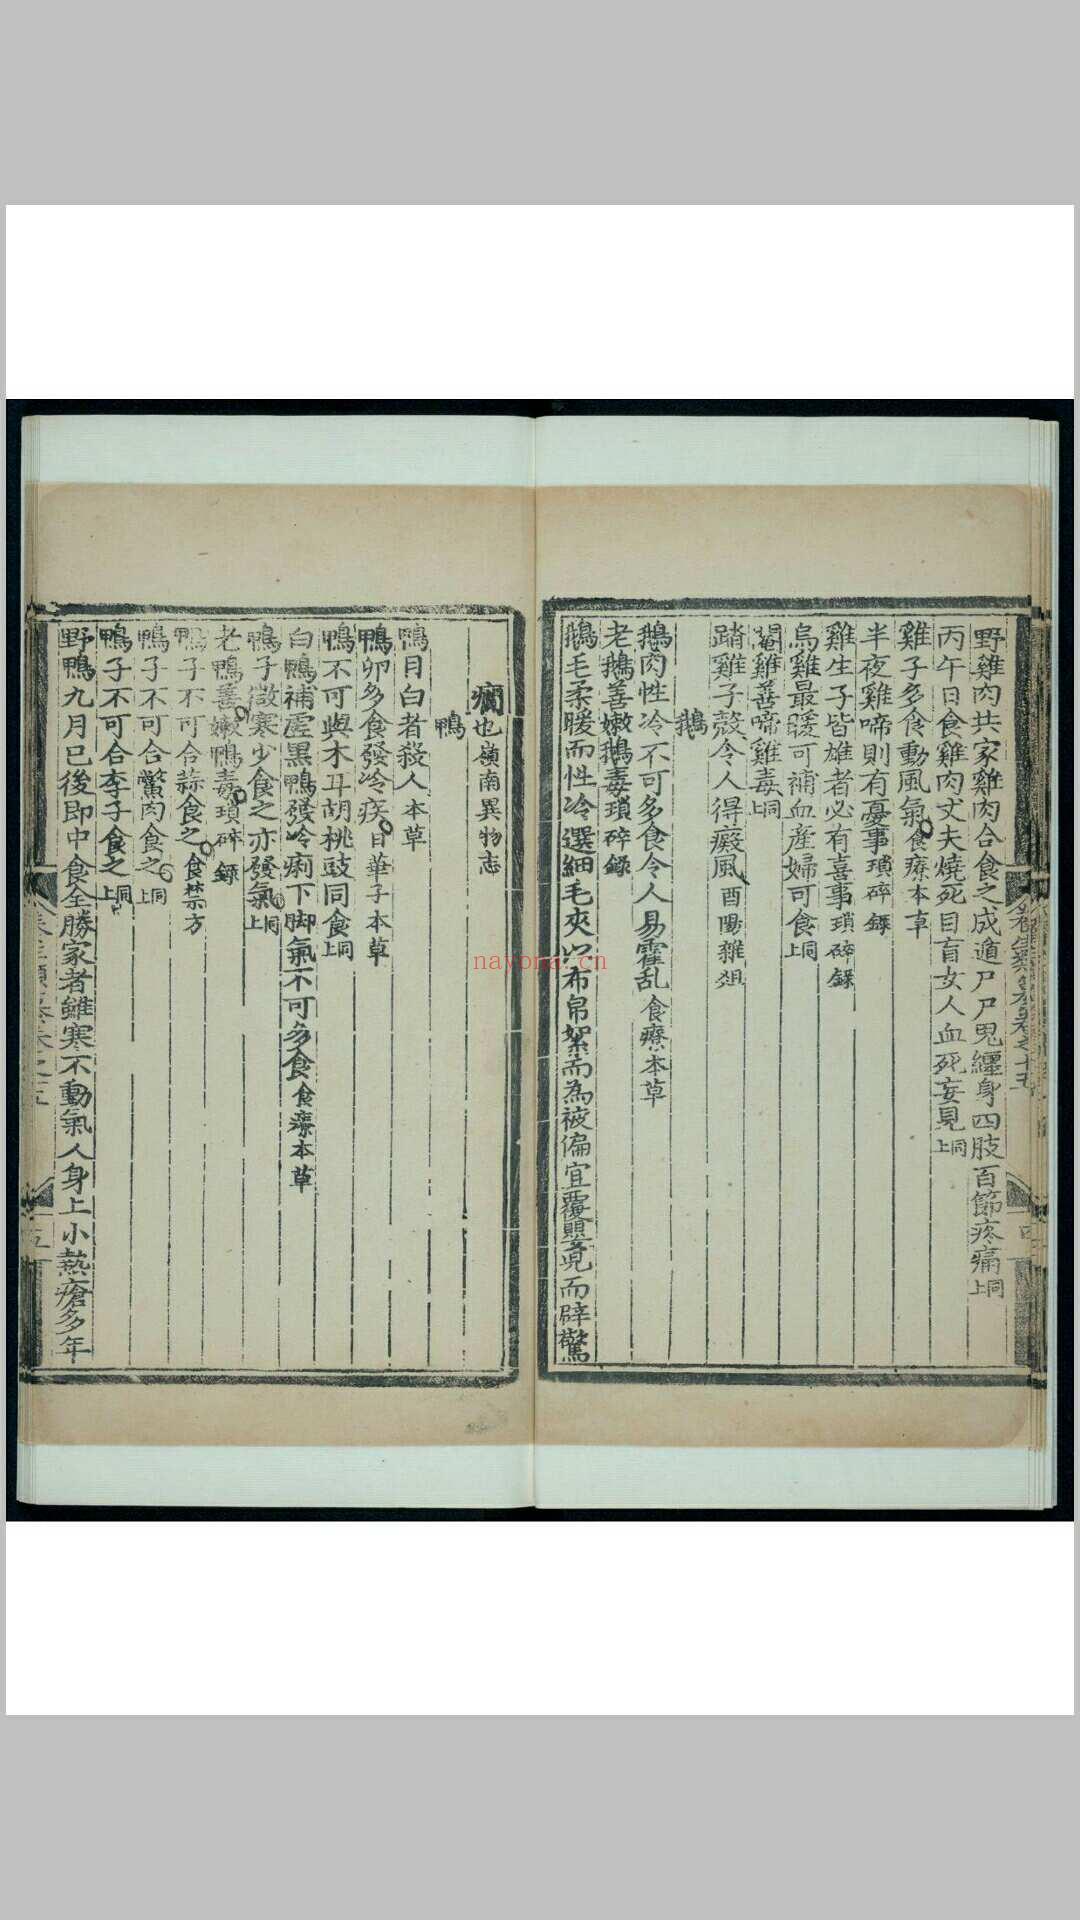 野雞肉共家雞肉合食之成遁尸尸鬼纏身四肢百節疼痛同上
丙午日食雞肉丈夫燒死目盲女人血死妄見同上
雞子多食動風氣食療本草
半夜雞啼則有憂事瑣碎錄
雞生子皆雄者必有喜事瑣碎錄
烏雞最暖可補血産婦可食同上
閹雞善啼雞毒同上
踏雞子殼令人得癜風酉陽雜俎
鵝
鵝肉性冷不可多食令人易霍乱食療本草
老鵝善嫩鵝毒瑣碎錄
鵝毛柔暖而性冷選細毛夾以布帛絮而為被偏宜覆嬰児而辟驚
癇也嶺南異物志
鴨
鴨目白者殺人本草
鴨卵多食發冷疾日華子本草
鴨不可與木耳胡桃豉同食同上
白鴨補虛黑鴨發冷痢下脚氣不可多食食療本草
鴨子微寒少食之亦發氣同上
老鴨善嫩鴨毒瑣碎錄
鴨子不可合蒜食之食禁方
鴨子不可合鱉肉食之同上
鴨子不可合李子食之同上
野鴨九月已後即中食全勝家者雖寒不動氣人身上小熱瘡多年
nayona.cn